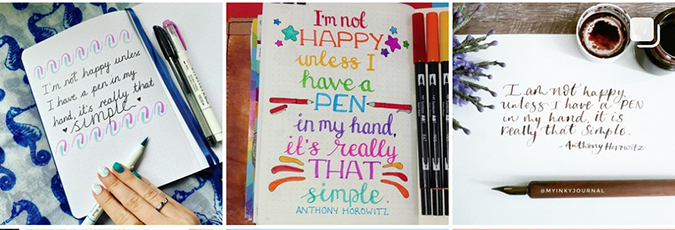 I'm not happy unless
I have a pen in my
hand, it's really that
simple
I'm not
HAPPY
unless I
have a
PEN
in my hand,
it's really
THAT
simple.
ANTHONY HOROWITZ
I am not happy
unless I have a PEN
in my hand, it is
really that simple.
- Anthony Horowitz
@MYINKYJOURNAL